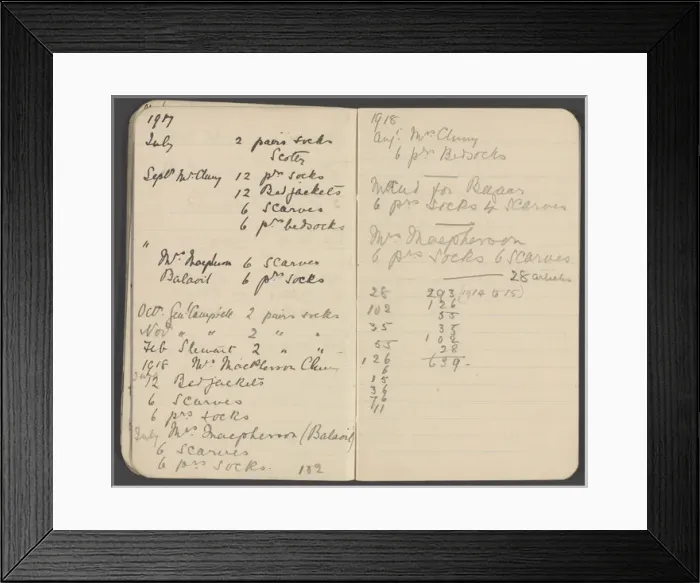 1917
July 2 pairs socks
Scoter
Septr Mrs Cluny 12 prs socks
12 Bedjackets
6 scarves
6 prs bedsocks
"
Mrs Macpherson 6 scarves
Balavil 6 prs socks
Octr Genl Campbell 2 pairs socks
Nov " " 2 " "
Feb Stewart 2 " "
1918 Mrs MacPherson Cluny
12 Bedjackets
6 scarves
6 prs socks
July Mrs Macpherson (Balavil)
6 scarves
6 prs socks. 102
1918
Mrs Cluny
6 prs Bedsocks
for Bazaar
6 prs socks 4 scarves
Mrs Macpherson
6 prs socks 6 scarves
28 articles
28 293 (1914 to 15)
102 126
35 55
55 35
126 102
6 28
15 639-
34
76
11